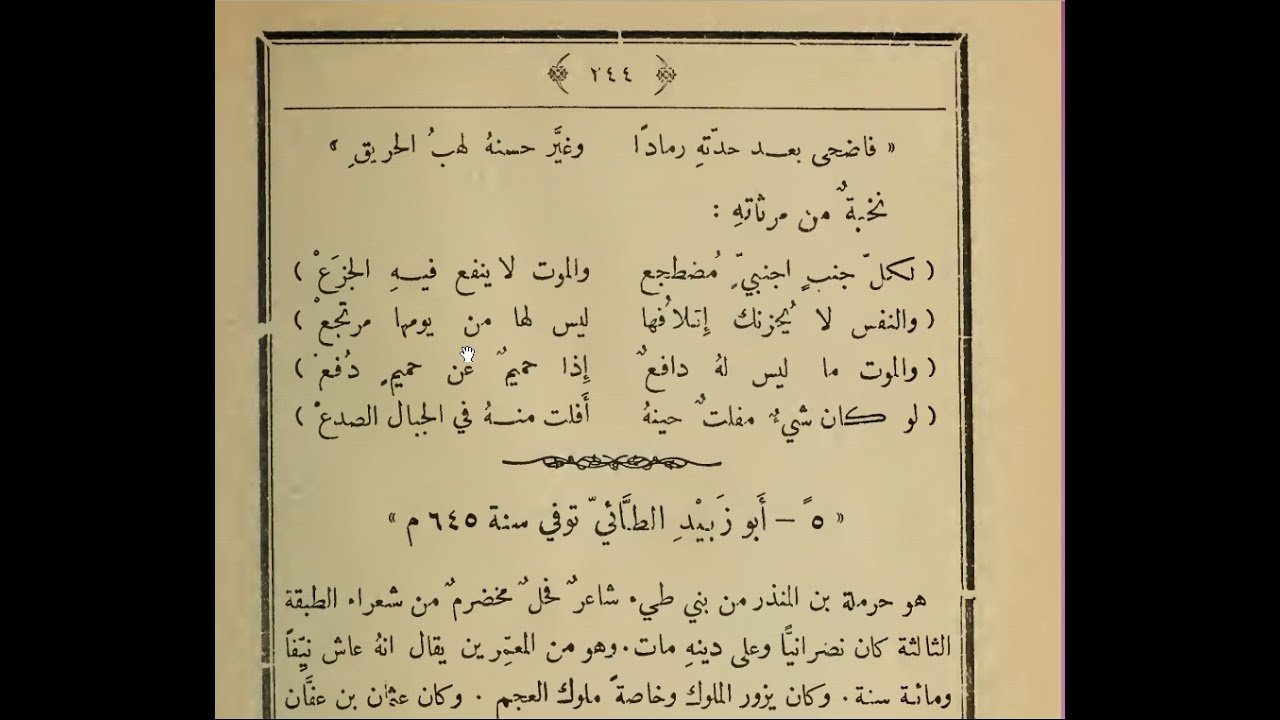 ٢٤٤
« فاضحى بعد حدّتهِ رمادًا وغيَّر حسنهُ لهبُ الحريقِ »
نخبةٌ من مرثاتهِ :
( لكلّ جنبٍ اجنبيّ مُضطجع والموت لا ينفع فيهِ الجزَعْ )
( والنفس لا يُحزنك إِتلافُها ليس لها من يومها مرتجعْ )
( والموت ما ليس لهُ دافعٌ إِذا حميمٌ عن حميمٍ دُفعْ )
( لو كان شيءٌ مفلتٌ حينهُ أَفلت منهُ في الجبال الصدعْ )
« ٥ً – أَبو زَبيْدِ الطَّائيّ توفي سنة ٦٤٥ م »
هو حرملة بن المنذر من بني طيء شاعرٌ فحلٌ مخضرمٌ من شعراء الطبقة
الثالثة كان نصرانيًّا وعلى دينهِ مات. وهو من المعمّرين يقال انهُ عاش نيّفاً
ومائة سنة. وكان يزور الملوك وخاصةً ملوك العجم . وكان عثمان بن عفَّان